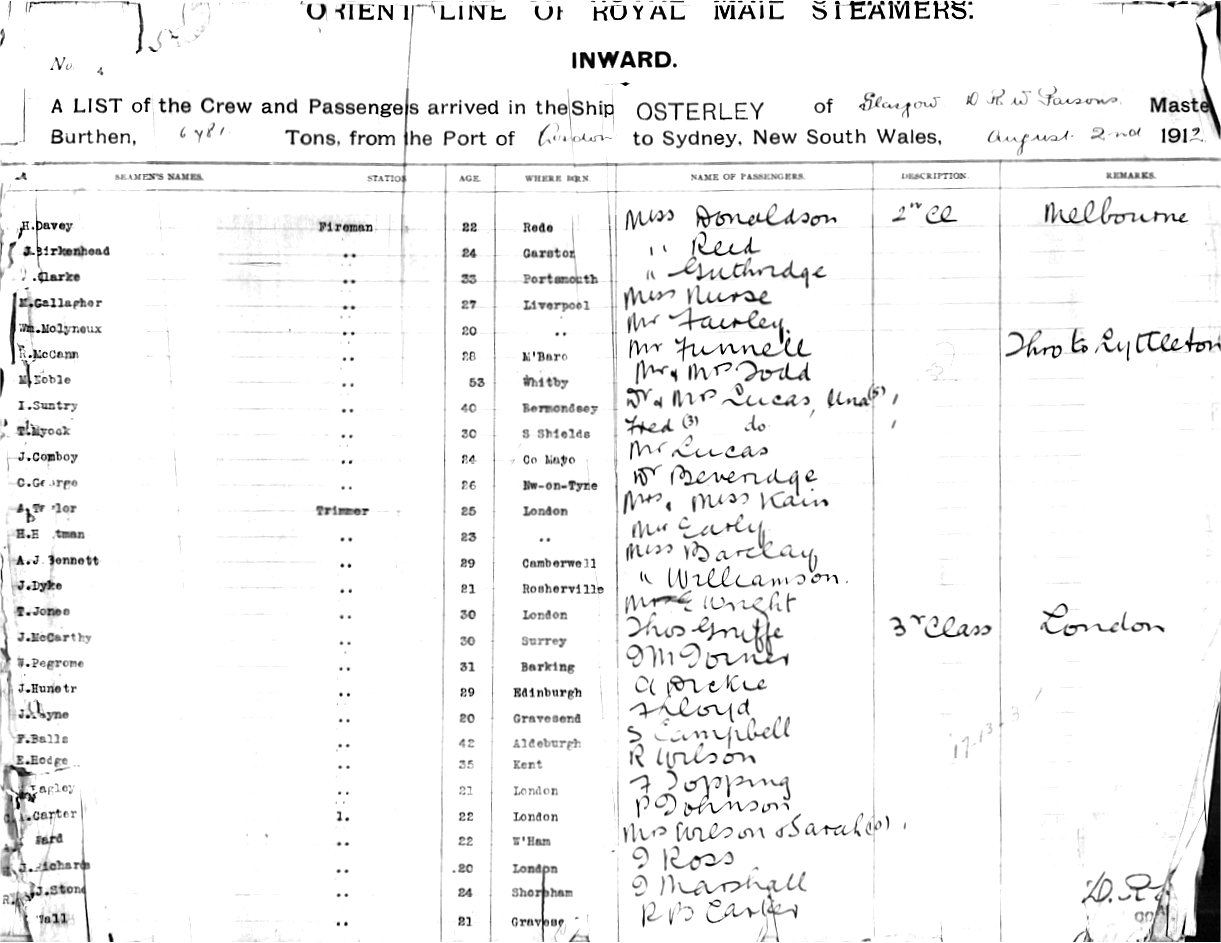 ORIENT LINE OF ROYAL MAIL STEAMERS.
No. 4
INWARD.
A LIST of the Crew and Passengers arrived in the Ship OSTERLEY of Glasgow D R W Parsons. Maste
Burthen, 6781 Tons, from the Port of London to Sydney, New South Wales, August 2nd 1912
SEAMEN'S NAMES. STATION AGE. WHERE BORN. NAME OF PASSENGERS. DESCRIPTION. REMARKS.
H.Davey Fireman 22 Rede Miss Donaldson 2nd Cl Melbourne
J.Birkenhead .. 24 Garston " Reid
Clarke .. 33 Portsmouth " Guthridge
M.Gallagher .. 27 Liverpool Miss Nurse
Wm.Molyneux .. 20 .. Mr Fairley.
R.McCann .. 28 M'Baro Mr Funnell Thro to Lyttleton
M.Noble .. 53 Whitby Mr & Mrs Todd
I.Suntry .. 40 Bermondsey Dr & Mrs Lucas, Una (5)
T.Myock .. 30 S Shields Fred (3) do
J.Comboy .. 24 Co Mayo Mr Lucas
C.George .. 26 Nw-on-Tyne Dr Beveridge
Trimmer 25 London Mrs, Miss Kain
H.H tman .. 23 .. Early
A.J.Bennett .. 29 Camberwell Miss Barclay
J.Dyke .. 21 Rosherville " Williamson.
T.Jones .. 30 London E Wright
J.McCarthy .. 30 Surrey Thos 3r Class London
W.Pegrome .. 31 Barking
J.Hunetr .. 29 Edinburgh A Dickie
J.Payne .. 20 Gravesend F Lloyd
F.Balls .. 42 Aldeburgh S Campbell
E.Hodge .. 35 Kent R Wilson
.. 21 London F Topping
Carter 1. 22 London P Johnson
Ward .. 22 W'Ham Mrs Wilson & Sarah
J.Richards .. 20 London J Ross
J.Stone .. 24 Shoreham J Marshall
Wall .. 21 Gravese R B Carter